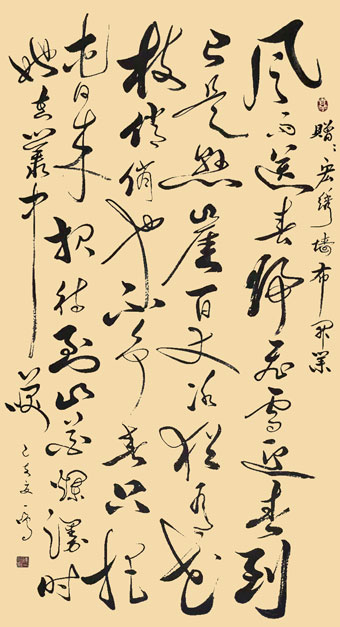 赠:宏绣墙布开业
风雨送春归飞雪迎春到
已是悬崖百丈冰犹有花
枝俏俏也不争春只把
春来报待到山花烂漫时
她在丛中笑
己亥夏